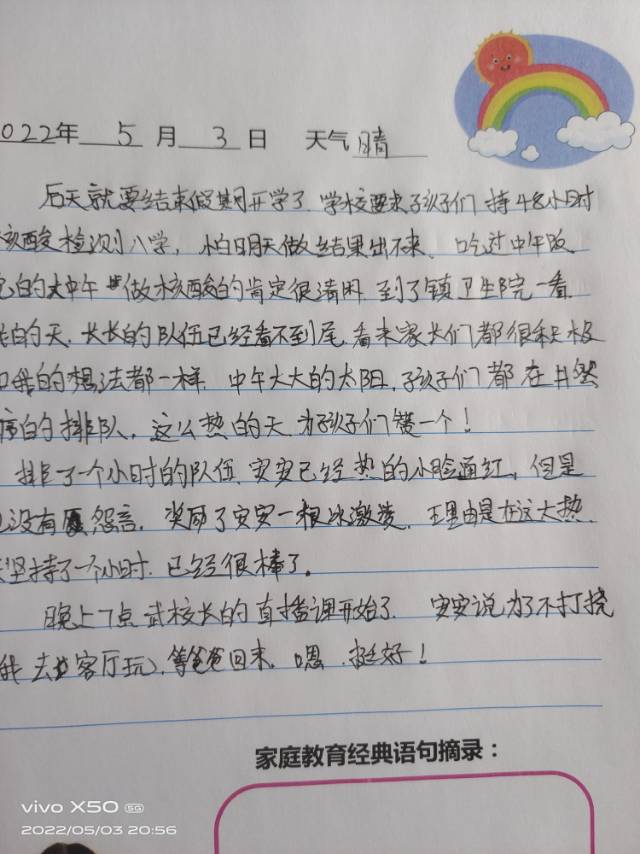 022年 5 月 3 日 天气 晴
后天就要结束假期开学了.学校要求孩子们持48小时
核酸检测入学，怕明天做结果出不来、吃过中午饭
的大中午 做核酸的肯定很清闲.到了镇卫生院一看
的天、长长的队伍已经看不到尾.看来家长们都很积极
和我的想法都一样.中午大大的太阳,孩子们都在井然
的排队，这么热的天为孩子们赞一个！
排了一个小时的队伍.安安已经热的小脸通红，但是
没有 怨言.奖励了安安一根冰激凌.理由是在这大热
坚持了一个小时.已经很棒了。
晚上7点武校长的直播课开始了.安安说为了不打扰
我去 客厅玩,等爸爸回来.嗯.挺好！
家庭教育经典语句摘录：
vivo X50 5G
2022/05/03 20:56